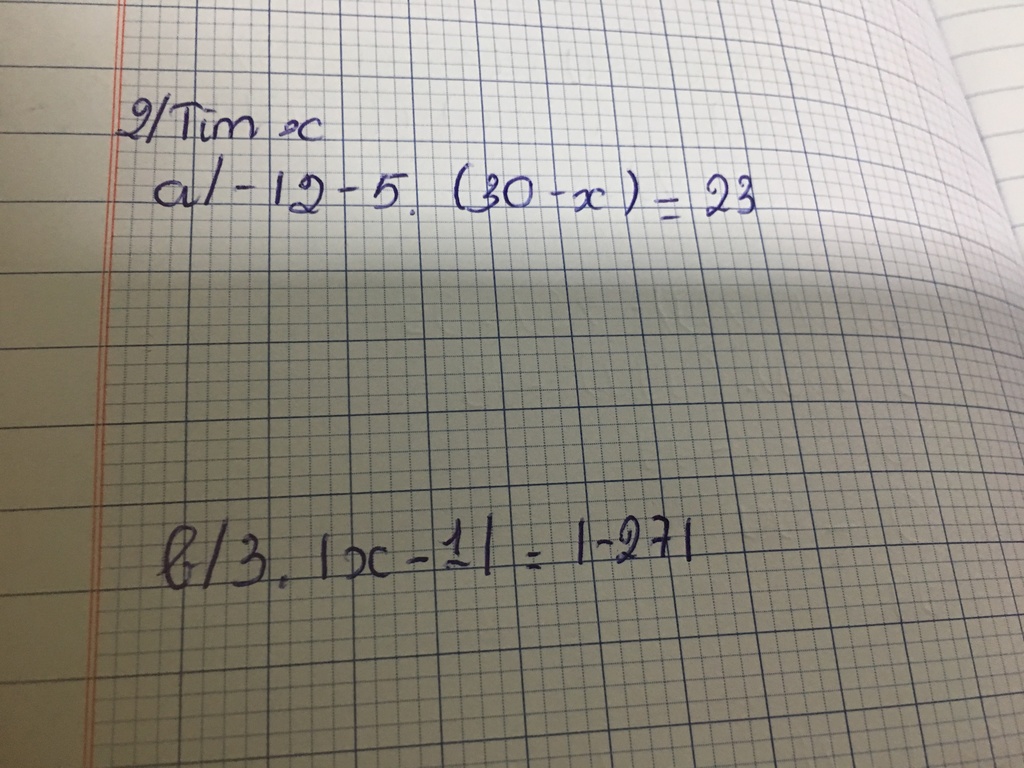 2/ Tìm x
a/ -12 - 5. (30 - x) = 23
b/ 3. |x - 1| = |-27|